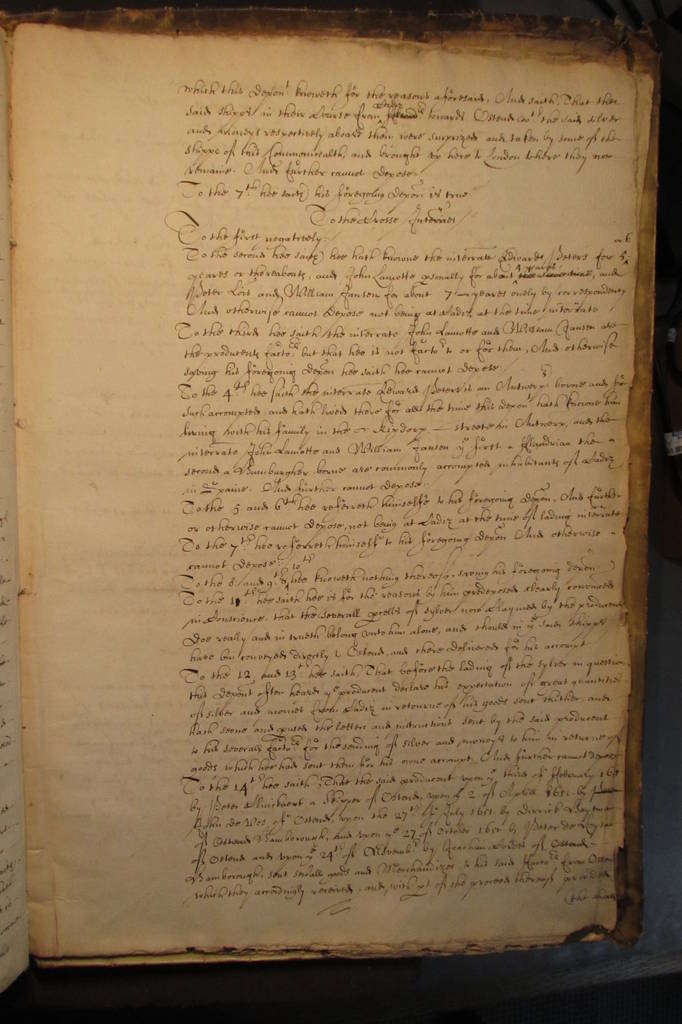 which this depont knoweth for the reasons aforesaid, And saith, That the
said shipps in their Course from Cadiz towards Ostend with the said silver
and moneys respectively aboard them were surprized and taken by some of the
shipps of this Commonwealth, and brought up here to London where they now
remaine. And further cannot depose.
To the 7th hee saith his foregoing depon is true.
To the Crosse Interries
To the first negatively.
To the second hee saith hee hath knowne the interrate Edward Peters for 5 or 6
yeares or thereabouts, and John Lamotte personally for about 4 yeares, and
Peter and William Jansen for about 7 yeares onely by correspondency
And otherwise cannot depose not being at Cadiz at the time interrate
To the third hee saith the interrate John Lamotte and William Jansen are
the producents factors but that hee is not factor to or for them, And otherwise
saving his foregoing depon hee saith hee cannot depose.
To the 4th hee saith the interrate Edward Peters is an Antwerper borne and for
such accompted, and hath lived there for all the time this depont hath knowne him
living with his family in the Kipdorp streete in Antwerp, and the
interrate John Lamotte and William Jansen ye first a Flandrian the
second a Hamburgher borne are commonly accompted inhabitants of Cadiz
in Spaine. And further cannot depose.
To the 5 and 6th hee referreth himselfe to his foregoing depon, And further
or otherwise cannot depose, not being at Cadiz at the time of lading interrate
To the 7th hee referreth himselfe to his foregoing depon And otherwise
cannot depose.
To the 8 and 9th & 10th hee knoweth nothing thereof, saving his foregoing depon
To the 11th hee saith hee is for the reasons by him predeposed clearly convinced
in Conscience, that the severall pcells of sylver now claymed by the producent
doe really and in trueth belong unto him alone, and should in ye said shipps
have bin conveyed directly to Ostend, and there delivered for his account.
To the 12 and 13th hee saith, That before the lading of the sylver in question
this depont often heard ye producent declare his expectation of great quantities
of silver and monies from Cadiz in returne of his goods sent thither, and
hath seene and perused the letters and instructions sent by the said producent
to his severall factors for the sending of silver and moneys to him in returne of
goods which hee had sent them for his owne accompt. And further cannot depose
To the 14th hee saith, That the said producent upon ye third of February 165
by Peter a Skipper of Ostend, upon ye 2 of Aprill 1651 by
John de Vos of Ostend, upon the 27th of July 1651 by Dirrick
of Ostend Hamborough, and upon ye 27 of October 1651 by Peter de
of Ostend and upon ye 24th of Novemb by of Ostend
Hamborough, sent severall goods and Merchandizes to his said factors from Ostend
which they accordingly received, and with pt of the proceed thereof provided
the